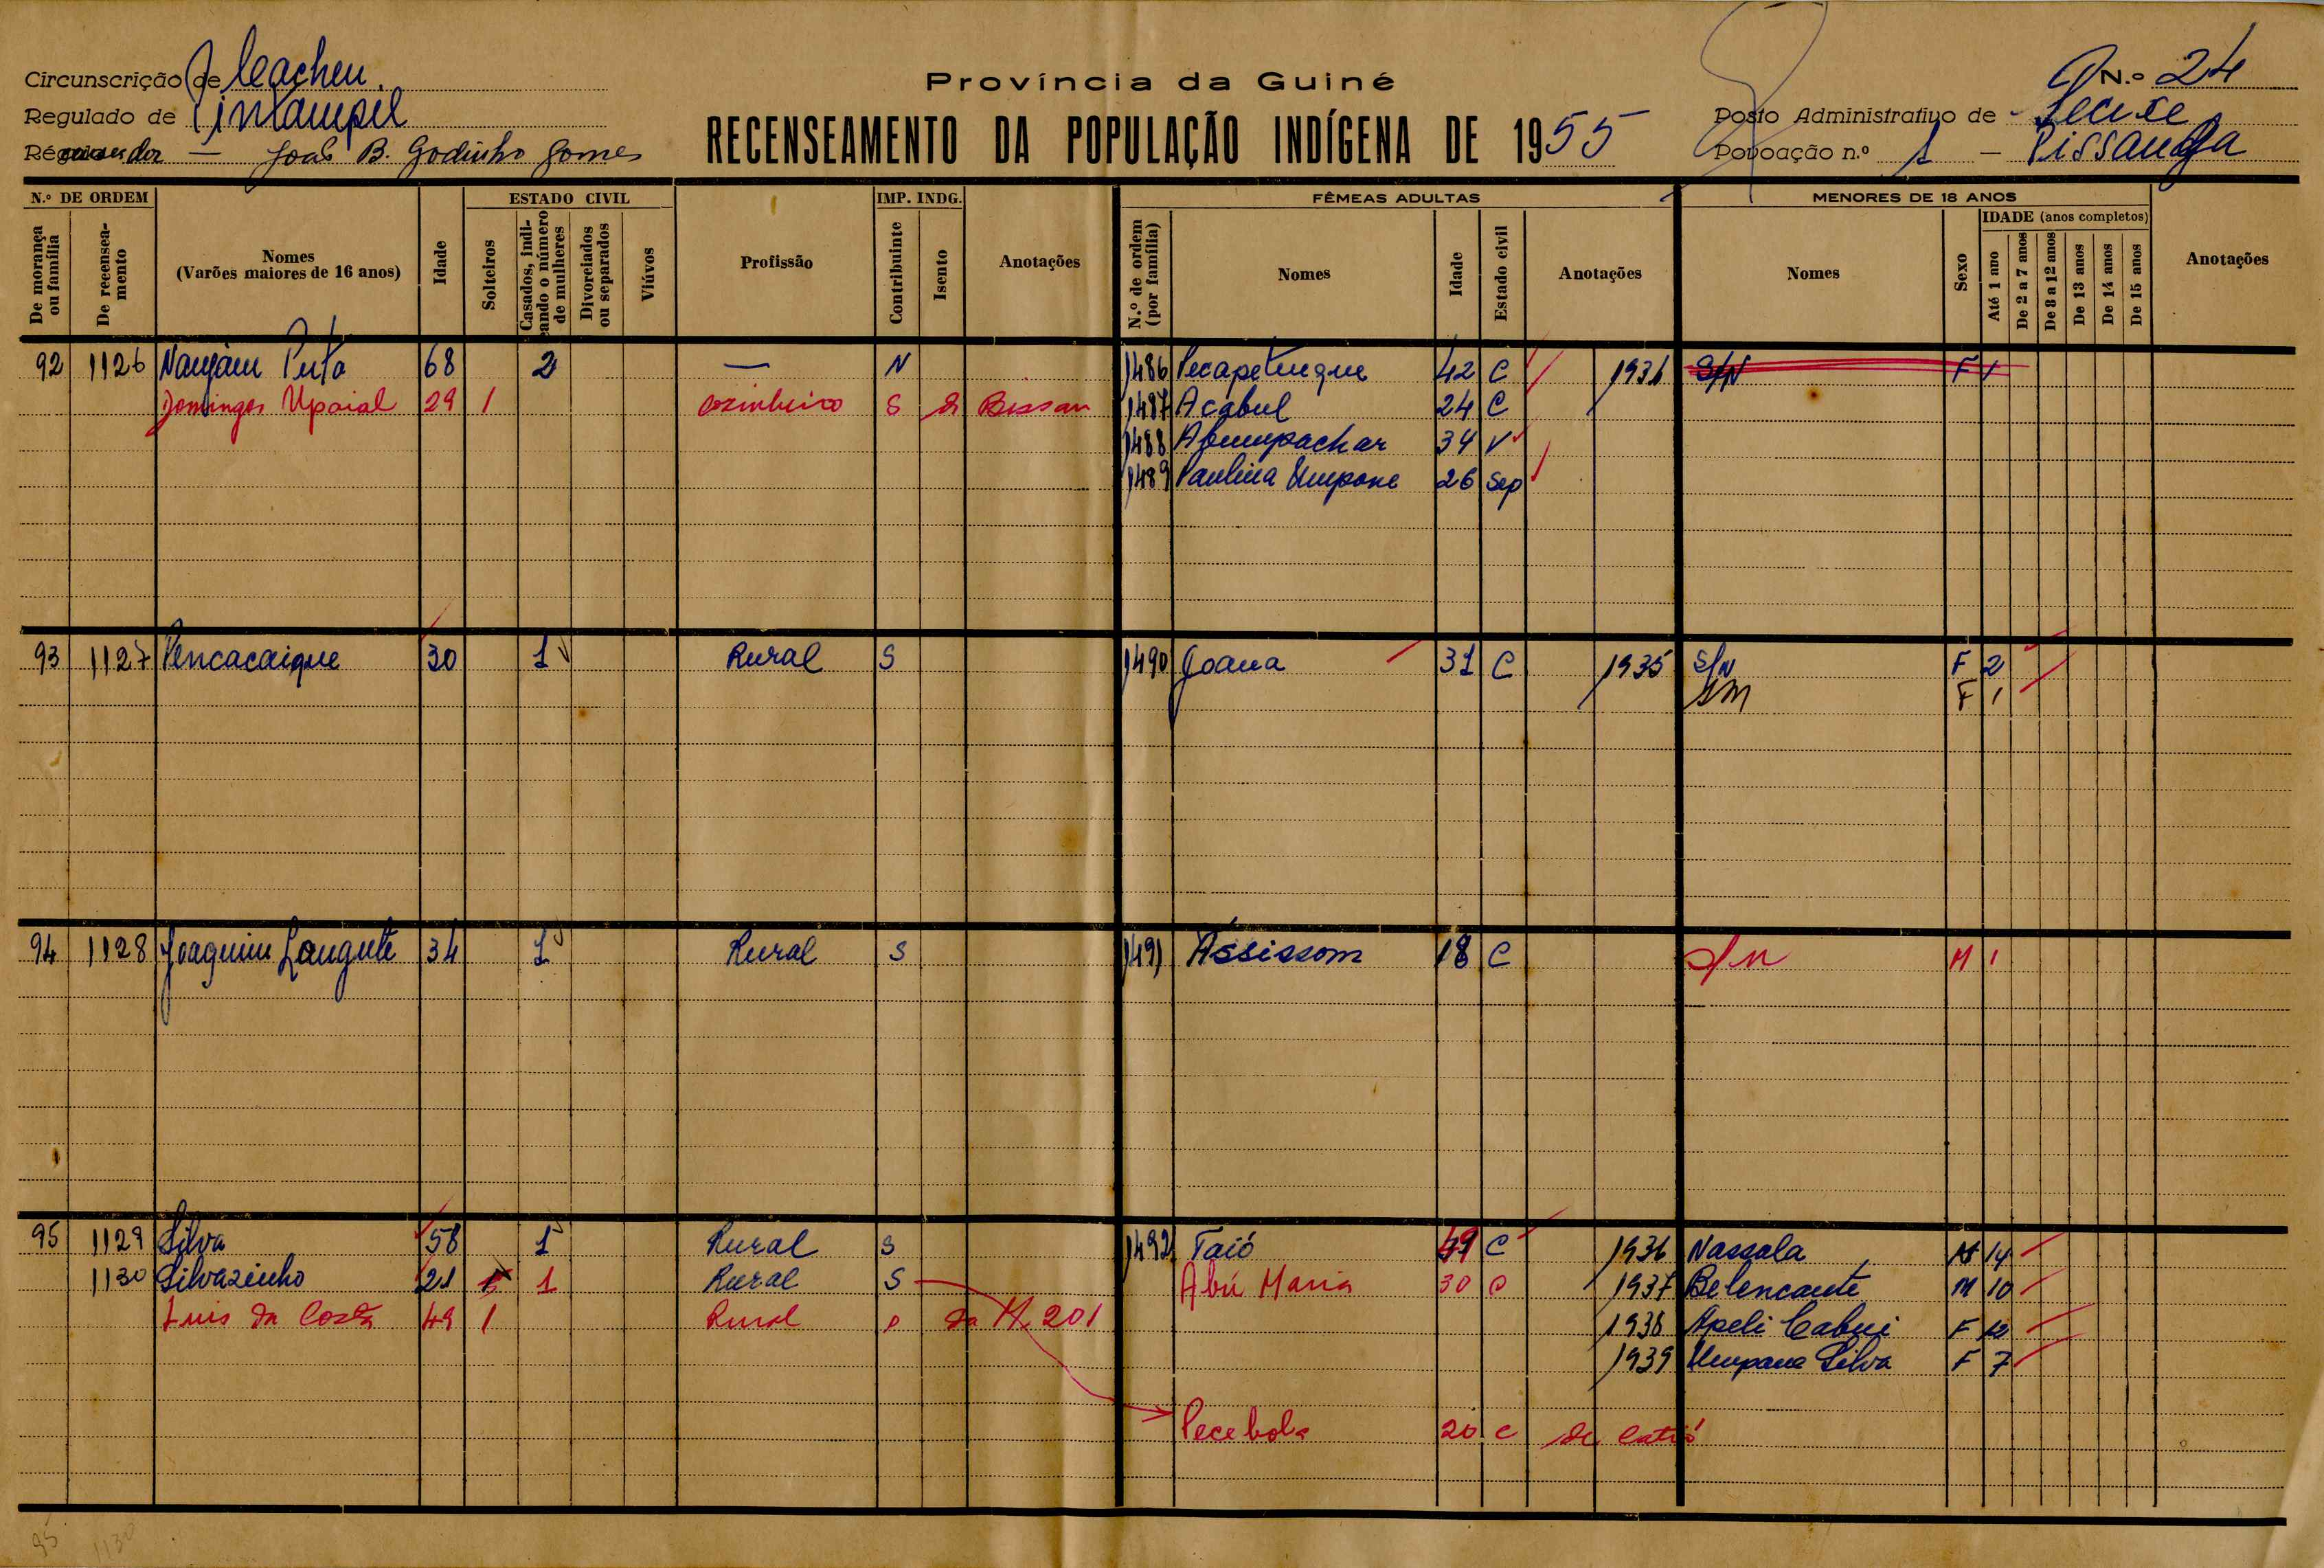 Circunscrição de Cacheu.
Regulado de
João B. Godinho Gomes
Província da Guiné
RECENSEAMENTO DA POPULAÇÃO INDÍGENA DE 1955
N.º 24
Posto Administrativo de
Povoação n.º 1 - Pissanga
N.º DE ORDEM
De morança ou família
De recenseamento
Nomes
(Varões maiores de 16 anos)
Idade
ESTADO CIVIL
Solteiros
Casados, indicando o número de mulheres
Divorciados ou separados
Viúvos
Profissão
IMP. INDG.
Contribuinte
Isento
Anotações
FÊMEAS ADULTAS
N.º de ordem (por família)
Nomes
Idade
Estado civil
Anotações
MENORES DE 18 ANOS
Nomes
Sexo
IDADE (anos completos)
Até 1 ano
De 2 a 7 anos
De 8 a 12 anos
De 13 anos
De 14 anos
De 15 anos
Anotações
92 1126 68 2 — N 1486 Pecapetuque 42 C 1931 S/N F 1
Domingos Upaial 29 1 cozinheiro S de Bissau 1487 Acabul 24 C
1488 Abumpachar 34 V
1489 Paulina Umpane 26 Sep
93 1127 Pencacaique 30 1 Rural S 1490 Joana 31 C 1935 S/N F 2
F 1
94 1128 Joaquim Langute 34 1 Rural S 1491 Assissom 18 C S/N M 1
95 1129 Silva 58 1 Rural S 1492 Taió 49 C 1936 Nassala M 14
1130 Silvazinho 21 1 Rural S Abú Maria 30 C 1937 Belencante M 10
Luis da Costa 49 1 Rural da M. 201 1938 Apeli Cabui F 12
1939 Umpane Silva F 7
Pecebola 20 C de Catió
95 1130